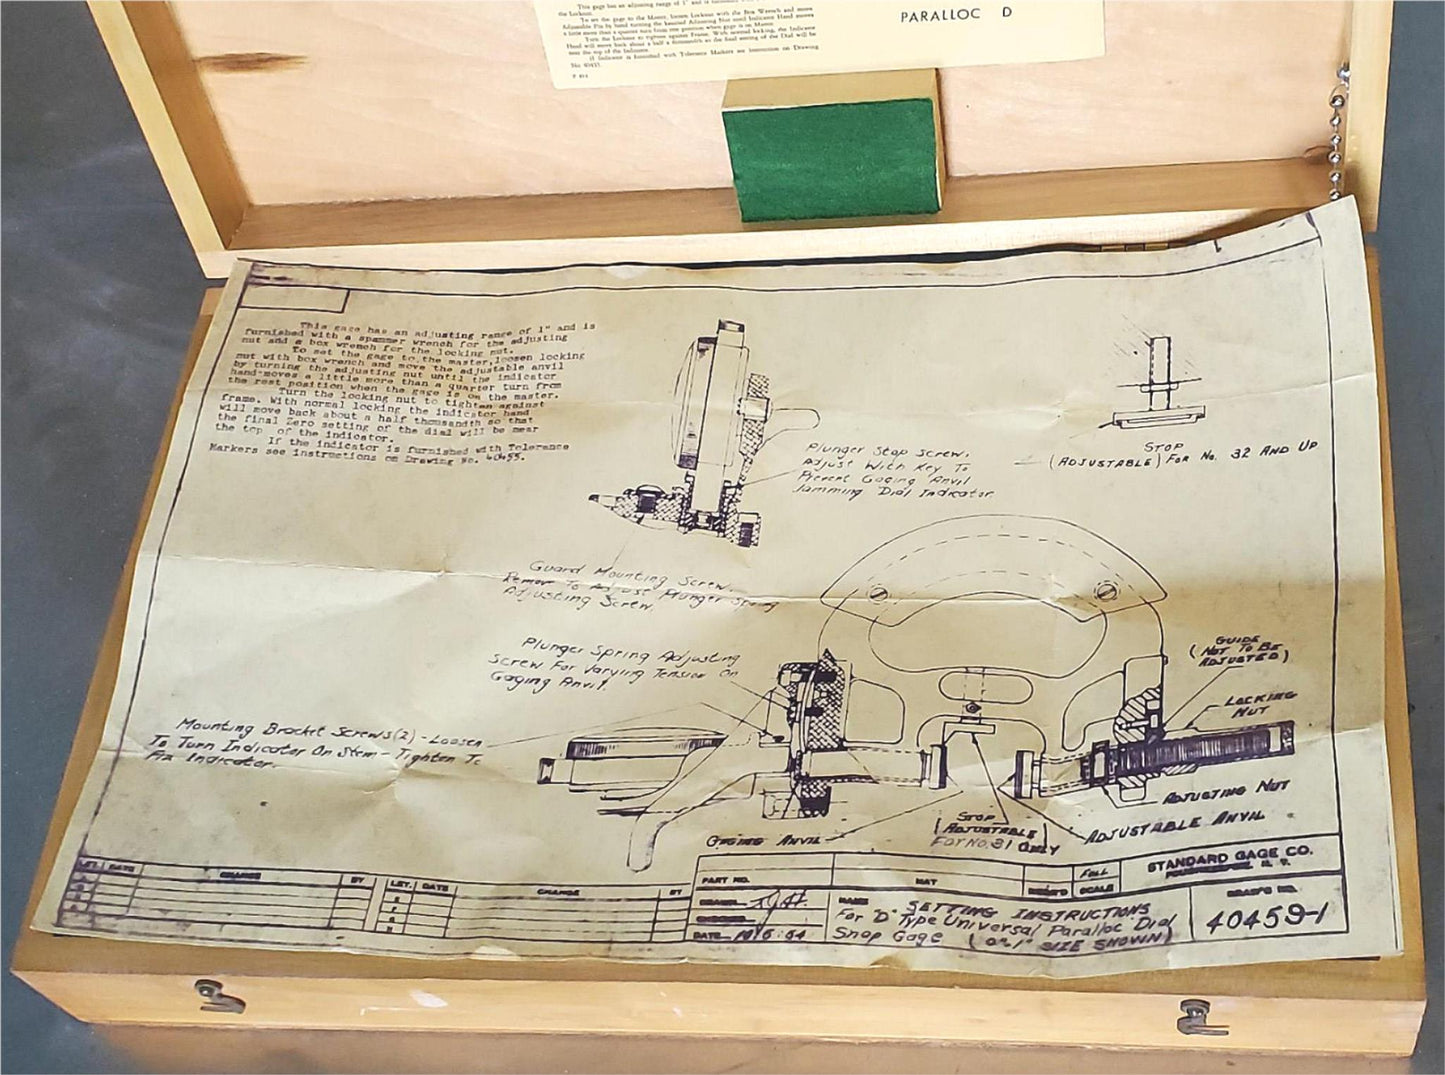 This gage has an adjusting range of 1" and is furnished
the Locknut.
To set the gage to the Master, loosen Locknut with the Box Wrench and move
Adjustable Pin by hand turning the knurled Adjusting Nut until Indicator Hand moves
a little more than a quarter turn from rest position when gage is on Master.
Turn the Locknut to tighten against Frame. With normal locking, the Indicator
Hand will move back about a half a thousandth so the final setting of the Dial will be
near the top of the Indicator.
If Indicator is furnished with Tolerance Markers see instruction on Drawing
No. 40455.
PARALLOC D
This gage has an adjusting range of 1" and is
furnished with a spammer wrench for the adjusting
nut add a box wrench for the locking nut.
To set the gage to the master, loosen locking
nut with box wrench and move the adjustable anvil
by turning the adjusting nut until the indicator
hand moves a little more than a quarter turn from
the rest position when the gage is on the master.
Turn the locking nut to tighten against
frame. With normal locking the indicator hand
will move back about a half thousandth so that
the final Zero setting of the dial will be near
the top of the indicator.
If the indicator is furnished with Tolerance
Markers see instructions on Drawing No. 40455.
Plunger Stop Screw.
Adjust With Key To
Prevent Gaging Anvil
Jamming Dial Indicator
STOP
(ADJUSTABLE) FOR No. 32 AND UP
Guard Mounting Screw.
Remove To Adjust Plunger Spring
Adjusting Screw.
Plunger Spring Adjusting
Screw For Varying Tension On
Gaging Anvil.
Mounting Bracket Screws (2) - Loosen
To Turn Indicator On Stem - Tighten To
Fix Indicator.
GUIDE
(NOT TO BE
ADJUSTED)
LOCKING
NUT
ADJUSTING NUT
ADJUSTABLE ANVIL
STOP
(ADJUSTABLE)
FOR No. 31 ONLY
GAGING ANVIL
LET. DATE CHANGE BY LET. DATE CHANGE BY
PART NO. MAT FULL SCALE
STANDARD GAGE CO.
POUGHKEEPSIE, N. Y.
DRAWN
CHECKED
DATE 10/6/54
NAME SETTING INSTRUCTIONS
For "D" Type Universal Paralloc Dial
Snap Gage (0"-1" SIZE SHOWN)
DRAW'G NO.
40459-1